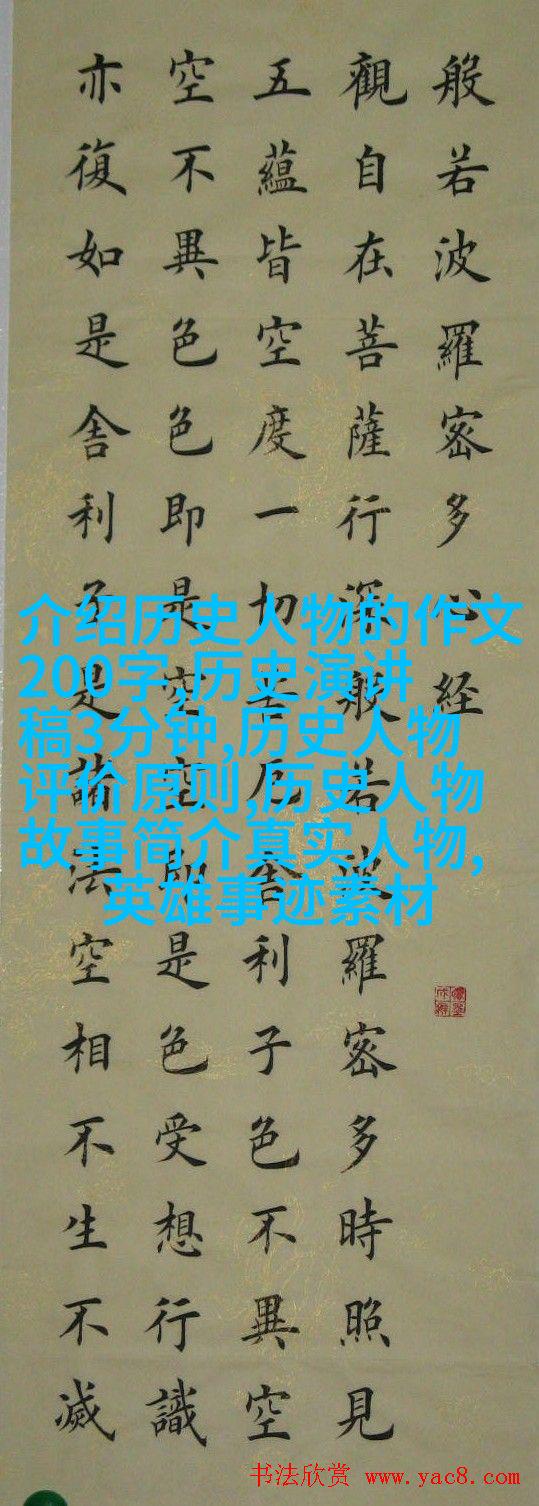 般若波羅密多心経
觀自在菩薩行深般若波羅密多時照見
五蘊皆空度一切苦厄舎利子色不異空
空不異色色即是空空即是色受想行識
亦復如是舎利子是諸法空相不生不滅
介绍历史人物的作文
200字,历史演讲
稿3分钟,历史人物
评价原则,历史人物
故事简介真实人物,
英雄事迹素材
书法欣赏 www.yac8.com